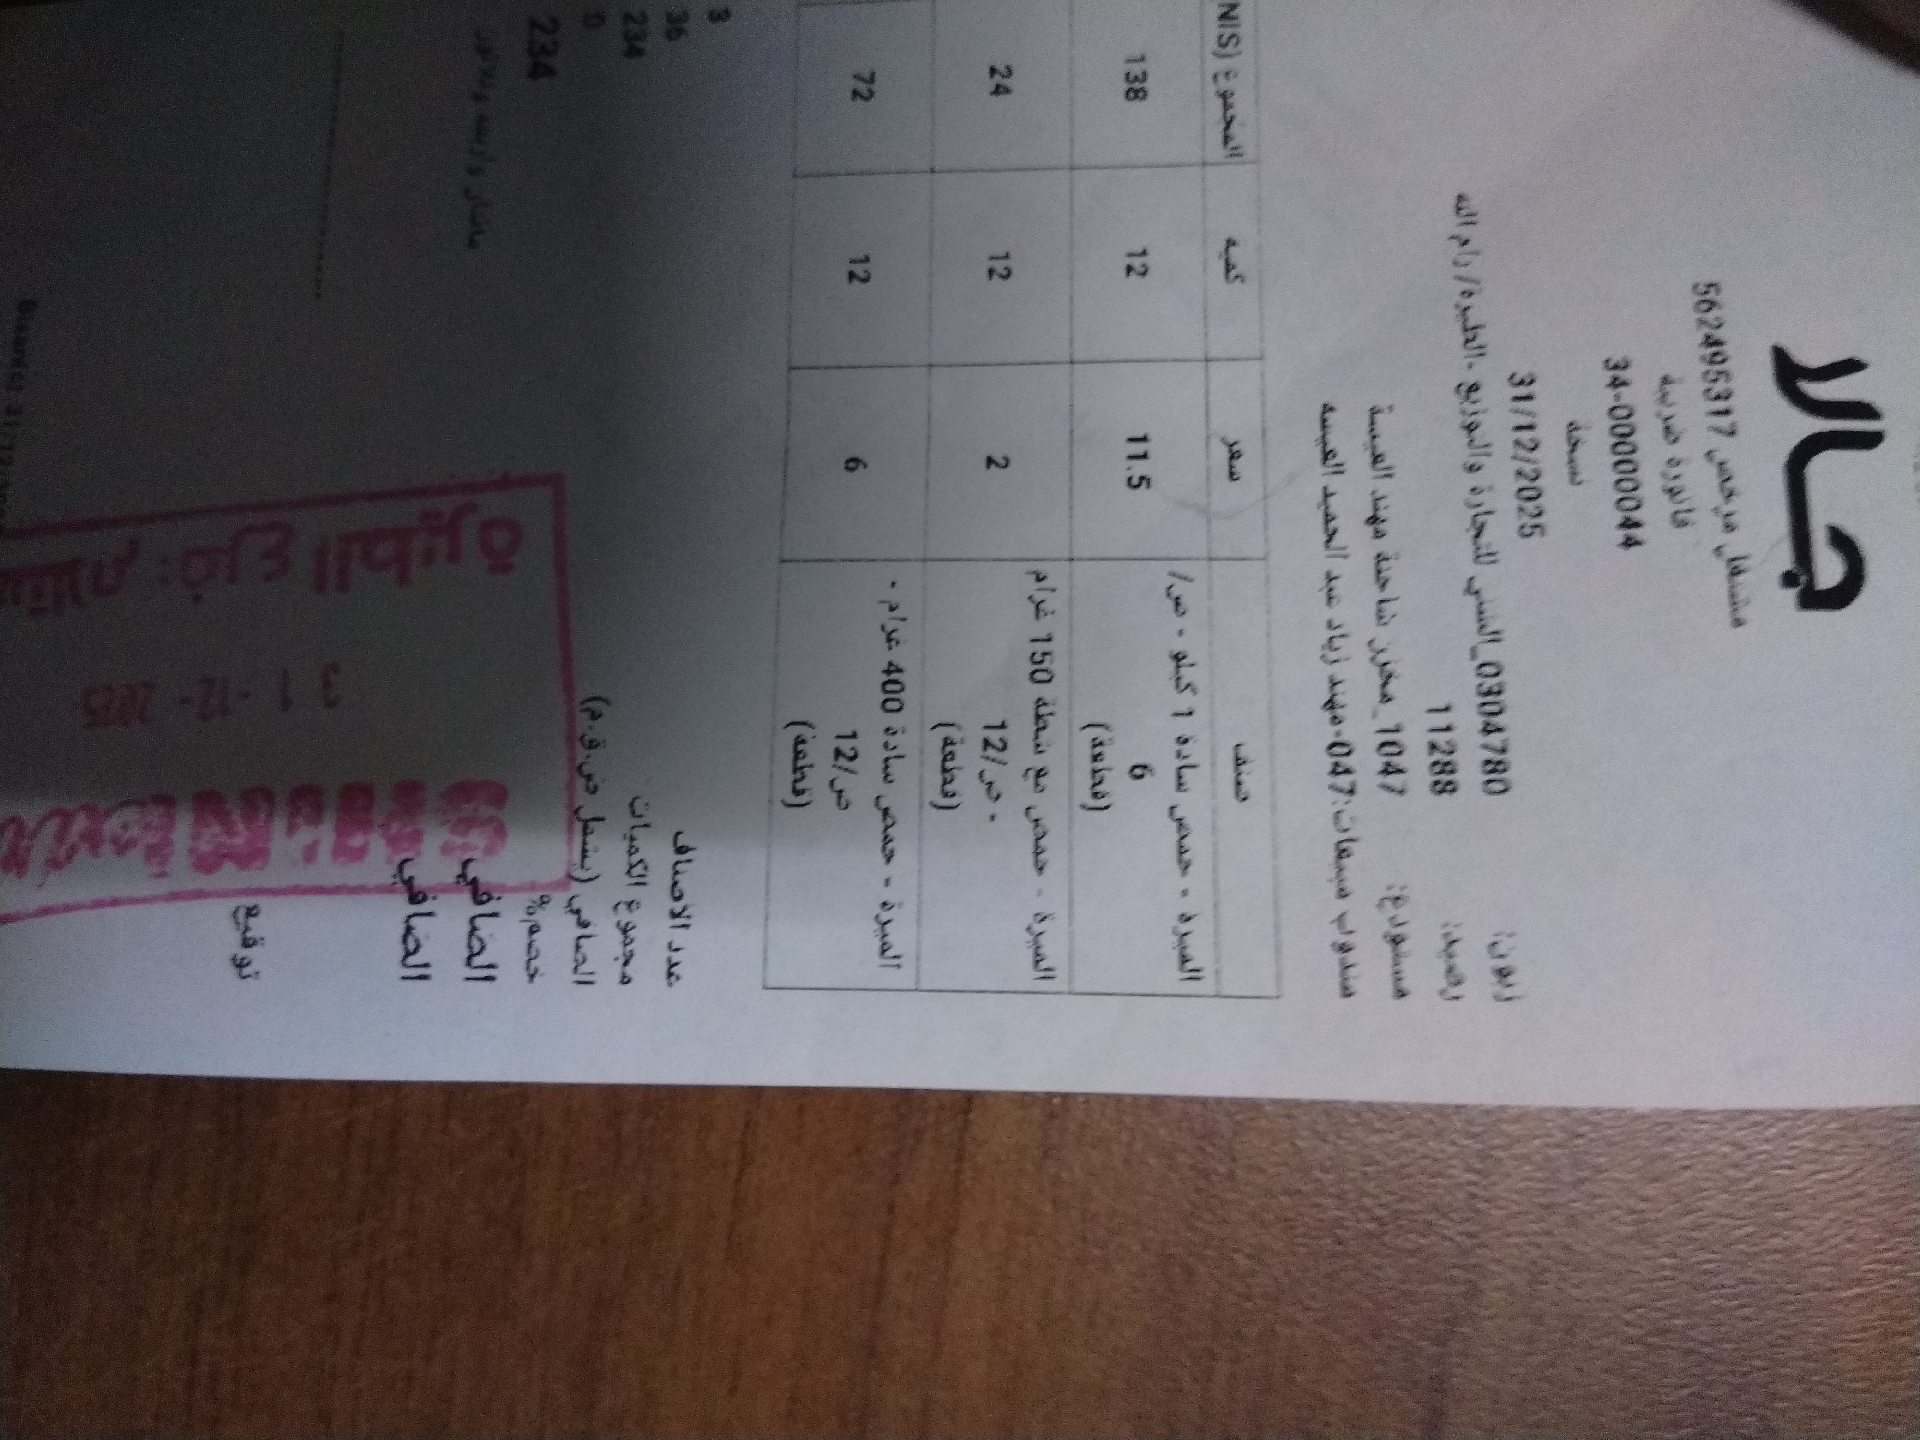 جالا
مشتغل مرخص 562495317
فاتورة ضريبية
34-00000044
نسخة
31/12/2025
زبون: 0304780_السني للتجارة والتوزيع -الطيرة/ رام الله
رصيد: 11288
مستودع: 1047_مخزن شاحنة مهند العيسة
مندوب مبيعات:047-مهند زياد عبد الحميد العيسه
صنف سعر كميه المجموع (NIS
الميرة - حمص سادة 1 كيلو - ص/ 11.5 12 138
6
(قطعة)
الميرة - حمص مع شطة 150 غرام 2 12 24
- ص/12
(قطعة)
الميرة - حمص سادة 400 غرام - 6 12 72
ص/12
(قطعة)
عدد الأصناف 3
مجموع الكميات 36
الصافي (يشمل ض.ق.م) 234
خصم% 0
الصافي 234
الصافي مئتان وأربعة وثلاثون
توقيع
فرع الطيرة
31-12-2025